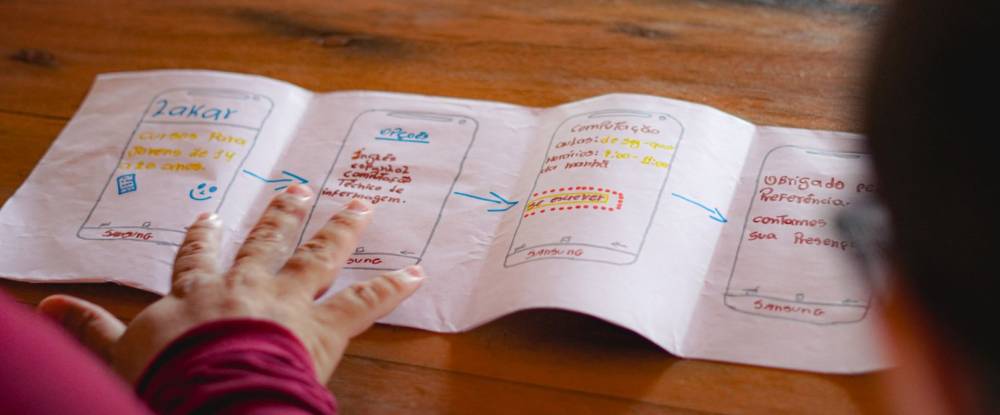 Zakar
cursos Para
Jovens de 14
a 20 anos.
SAMSUNG
OPÇOES
Inglês
espanhol
computação
Técnico de
infermagem.
SUNG
computação
aulas: de sg-qua
Horários: 9:00-11:00
da manhã
se escrever
SAMSUNG
Obrigado pe
Preferência.
contamos
sua Presenç
SAMSUNG